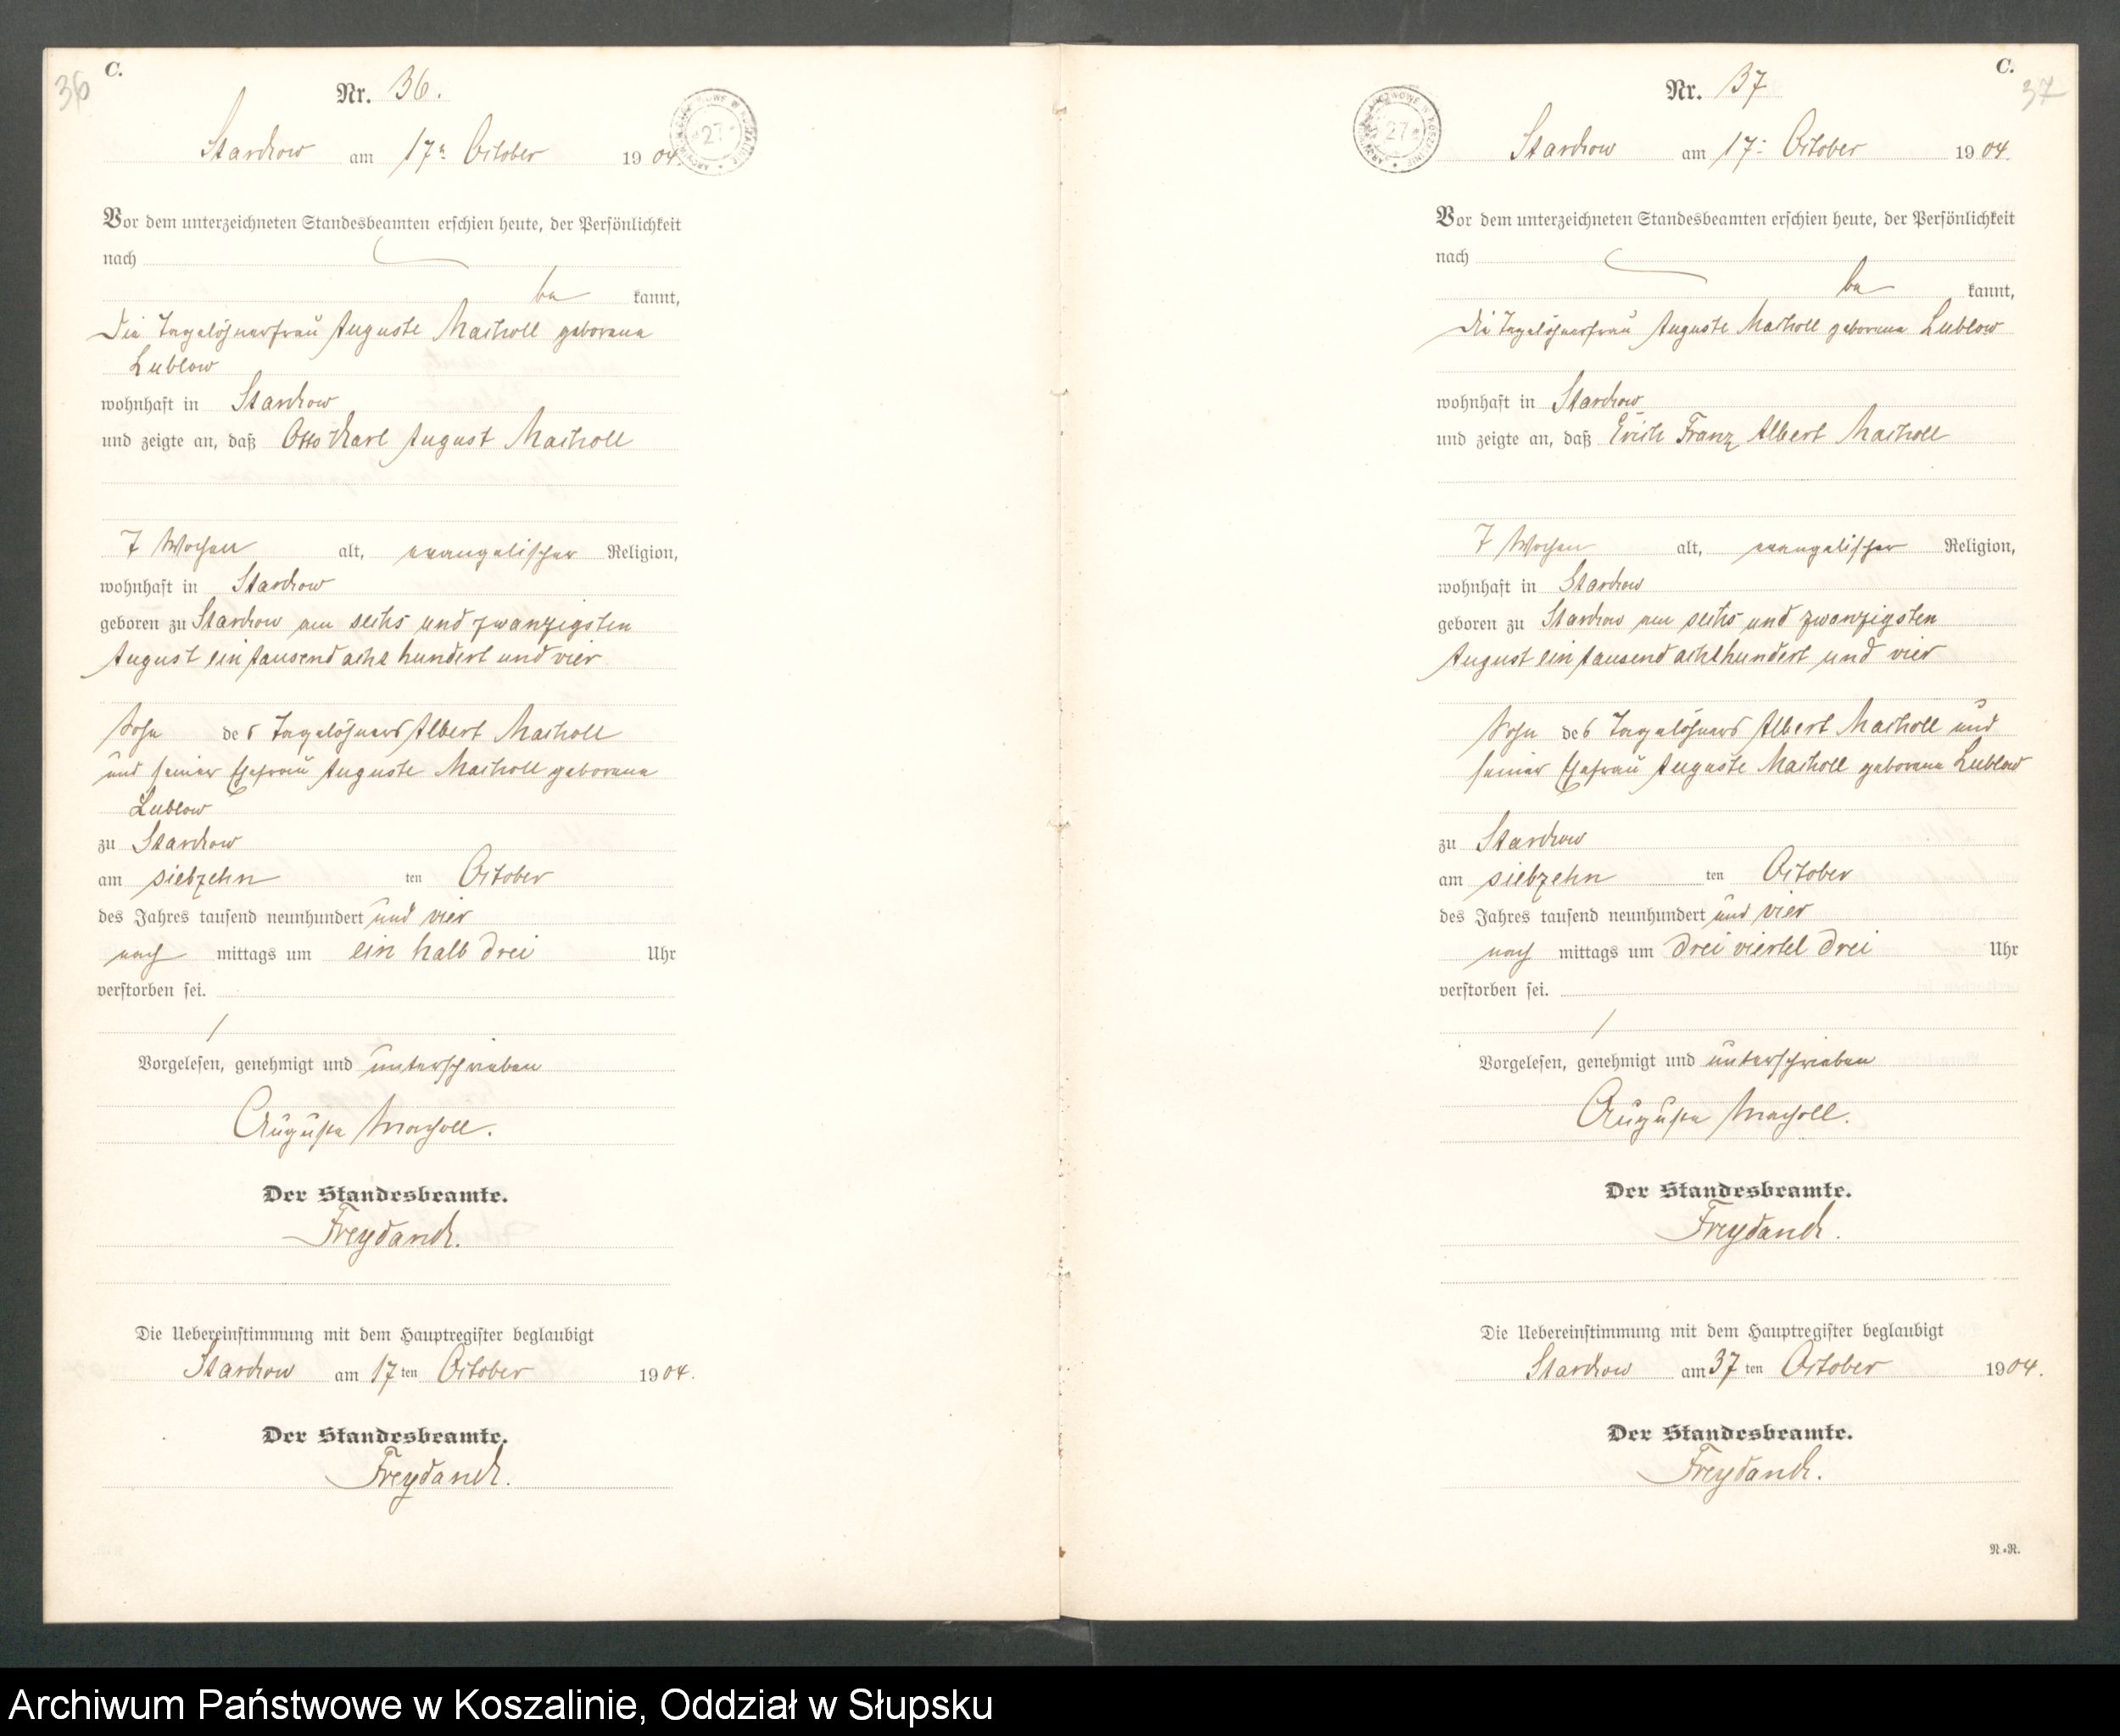 36
C.
Nr. 36.
Starckow am 17n October 1904.
27
Vor dem unterzeichneten Standesbeamten erschien heute, der Persönlichkeit
nach
be kannt,
die Tagelöhnerfrau Auguste Macholl geborene
Lublow
wohnhaft in Starckow
und zeigte an, daß Otto Karl August Machol
7 Wochen alt, evangelischer Religion,
wohnhaft in Starckow
geboren zu Starckow am sechs und zwanzigsten
August ein tausend acht hundert und vier
Sohn des Tagelöhners Albert Macholl
und seiner Ehefrau Auguste Macholl geborene
Lublow
zu Starckow
am siebzehn ten October
des Jahres tausend neunhundert und vier
nach mittags um ein halb drei Uhr
verstorben sei.
Vorgelesen, genehmigt und unterschrieben
Auguste Macholl.
Der Standesbeamte.
Freydanck.
Die Uebereinstimmung mit dem Hauptregister beglaubigt
Starckow am 17ten October 1904.
Der Standesbeamte.
Freydanck.
C.
37
Nr. 37
27
ARCHIWUM PAŃSTWOWE W KOSZALINIE
Starckow am 17: October 1904.
Vor dem unterzeichneten Standesbeamten erschien heute, der Persönlichkeit
nach
be kannt,
die Tagelöhnerfrau Auguste Macholl geborene Lublow
wohnhaft in Starckow
und zeigte an, daß Erich Franz Albert Macholl
7 Wochen alt, evangelischer Religion,
wohnhaft in Starckow
geboren zu Starckow am sechs und zwanzigsten
August ein tausend achthundert und vier
Sohn des Tagelöhners Albert Macholl und
seiner Ehefrau Auguste Macholl geborene Lublow
zu Starckow
am siebzehn ten October
des Jahres tausend neunhundert und vier
nach mittags um drei viertel drei Uhr
verstorben sei.
Vorgelesen, genehmigt und unterschrieben
Auguste Macholl.
Der Standesbeamte.
Freydanck.
Die Uebereinstimmung mit dem Hauptregister beglaubigt
Starckow am 37 ten October 1904.
Der Standesbeamte.
Freydanck.
N.=R.
Archiwum Państwowe w Koszalinie, Oddział w Słupsku